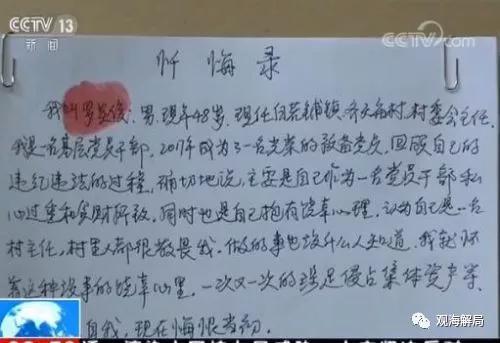 CCTV 13
新闻
CCTV.com
忏悔录
我叫罗 俊,男,现年48岁,现任 铺镇,齐天庙村,村委会主任。
我是一名基层党员干部,2017年成为了一名光荣的预备党员,回顾自己的
违纪违法的过程,确切地说,主要是自己作为一名党员干部私
心过重和贪财所致,同时也是自己抱有侥幸心理,认为自己是一名
村主任,村里人都很敬畏我,做的事也没什么人知道,我就怀
着这种做事的侥幸心里,一次又一次的涉足侵占集体资产
自我,现在悔恨当初.
观海解局